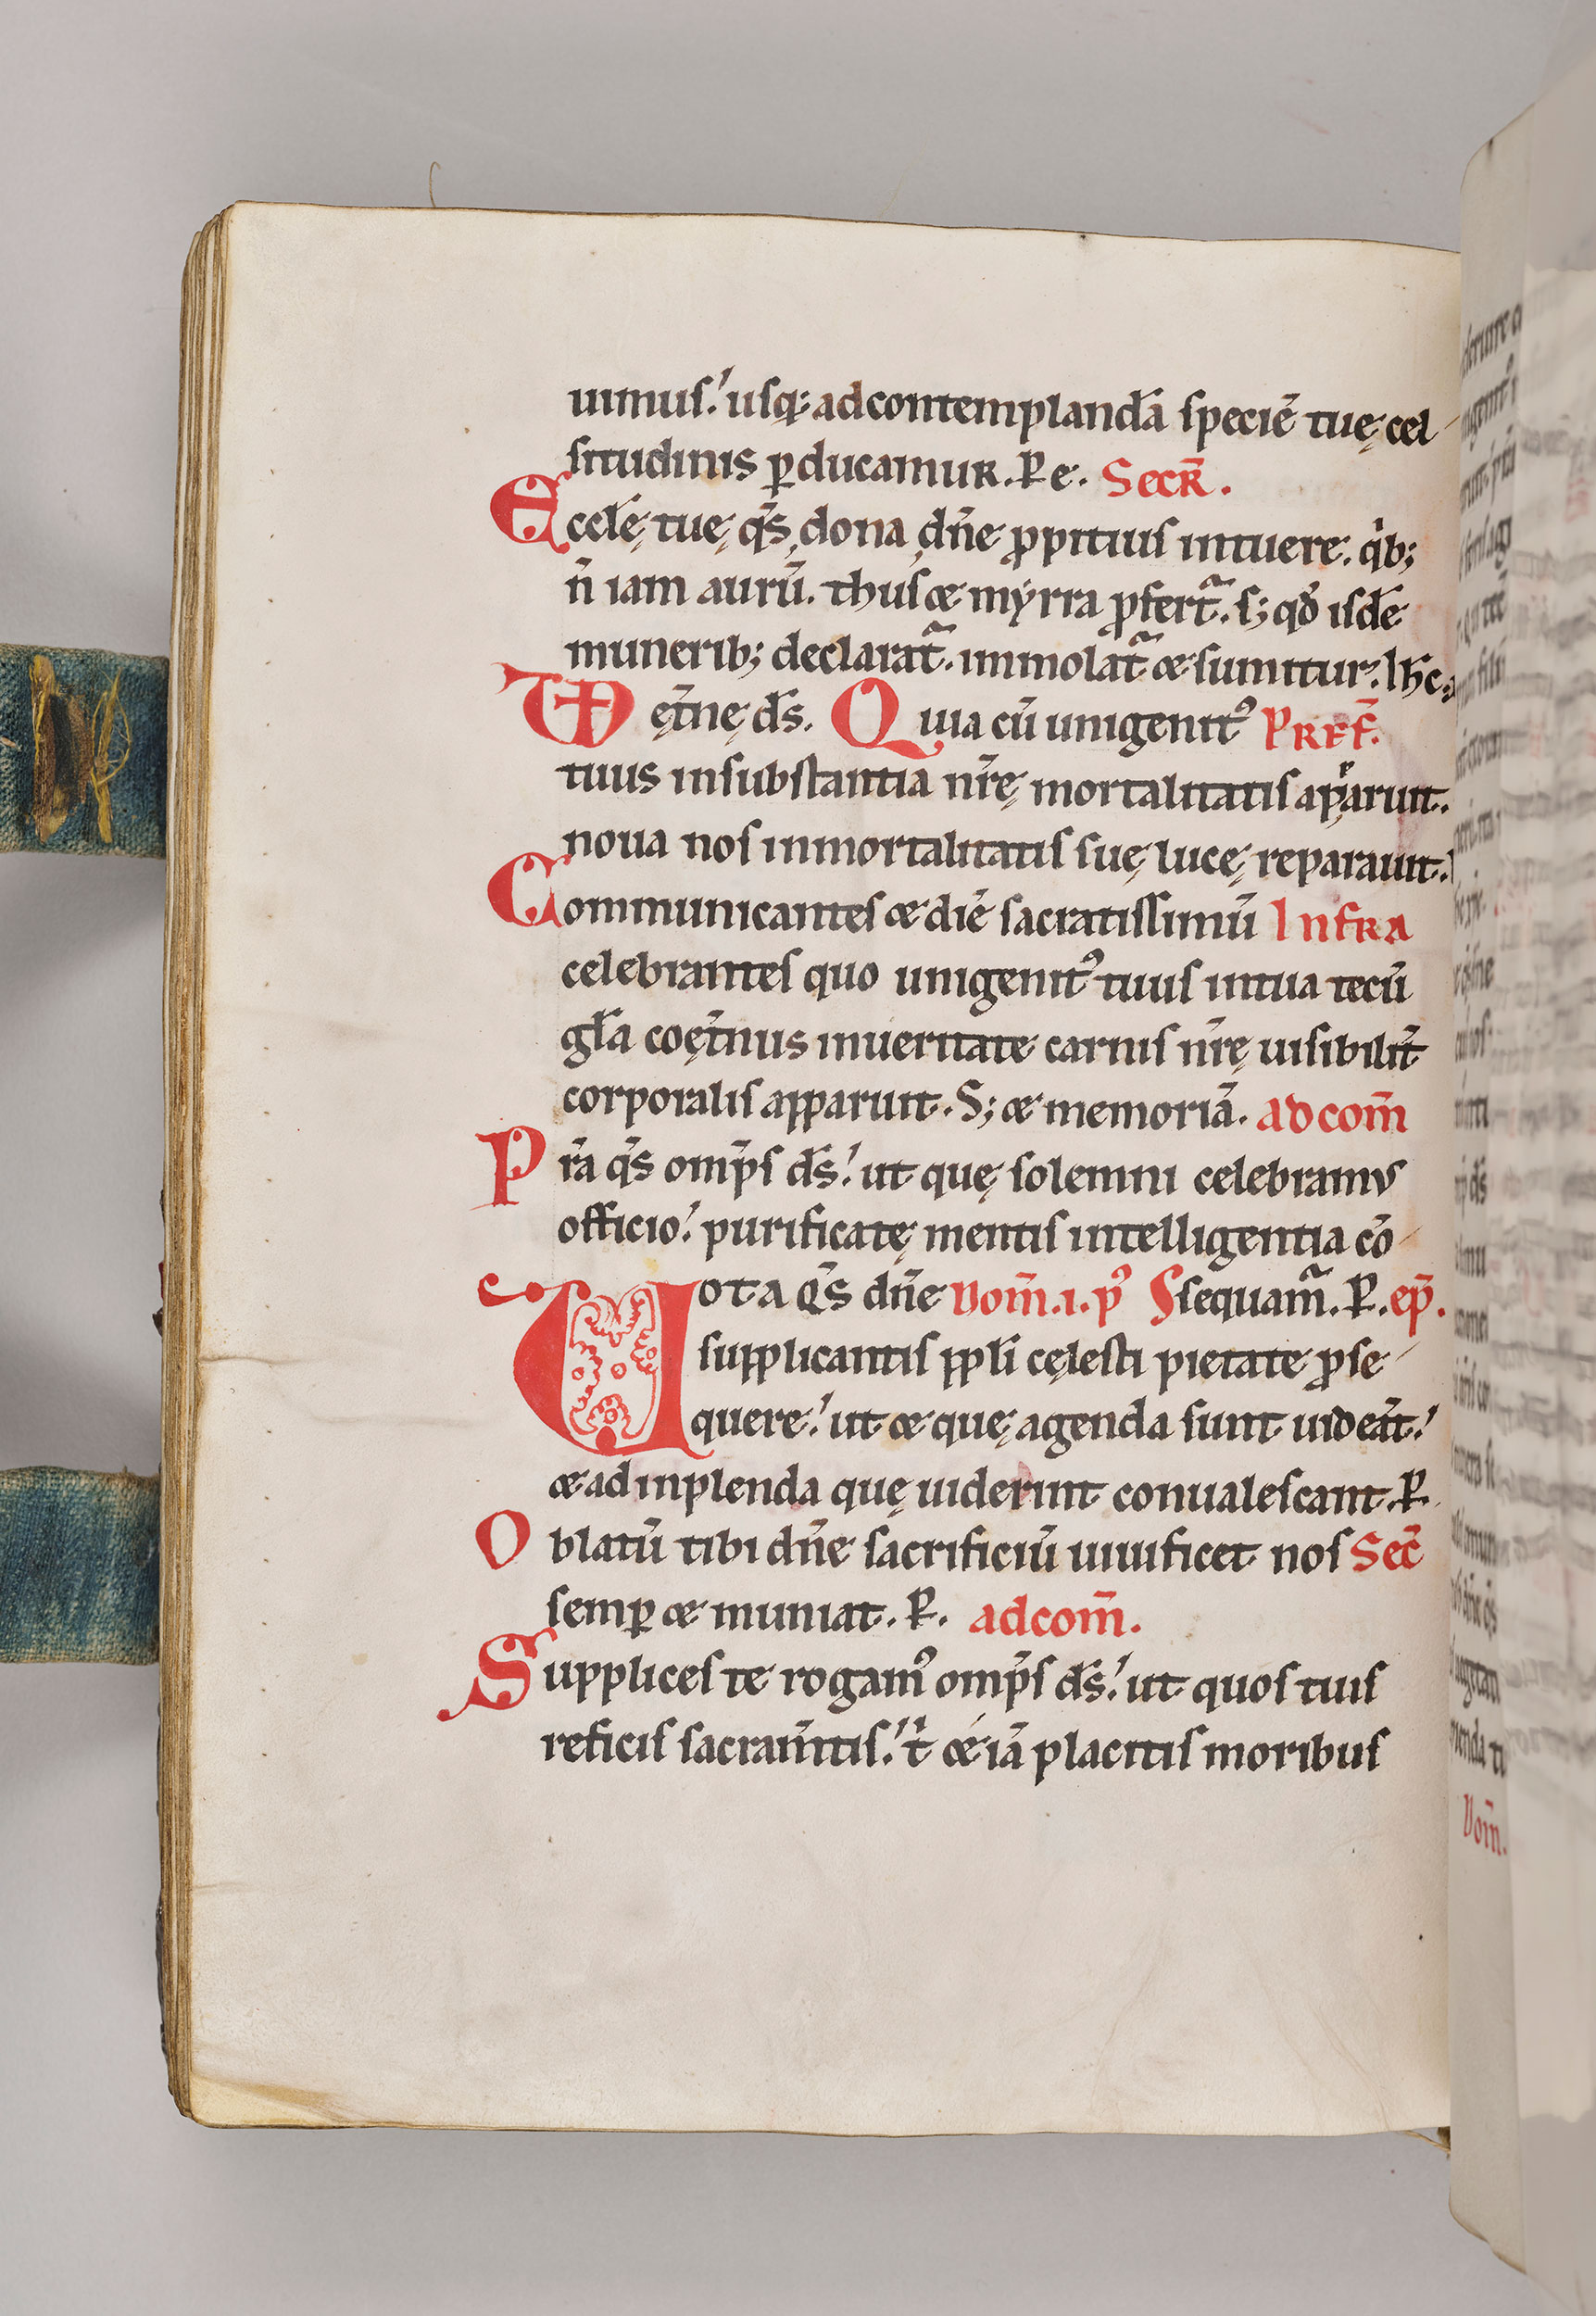 uimus. usq; ad contemplandā speciē tuę cel
situdinis ꝑducamur. P e. Secr̄.
Eccłę tuę q̄s dona dn̄e ꝓpitius intuere. qͥb;
n̄ iam aurū. thus & myrra ꝓfert᷑. s; qđ isdē
munerib; declarat᷑. immolat᷑ & sumitur. Ih̄c
VD ęt̄nę ds̄. Quia cū unigenitꝰ Pref̄.
tuus in substantia nr̄ę mortalitatis apparuit.
noua nos inmortalitatis suę lucę reparauit.
Communicantes & diē sacratissimū Infra
celebrantes quo unigenitꝰ tuus in tua tecū
gła coęt̄nus in ueritate carnis nr̄ę uisibilit̄
corporalis apparuit. S; & memoriā. ad com̄
Pr̄a q̄s omp̄s ds̄. ut quę solemni celebramus
officio. purificatę mentis intelligentia cō
Uota q̄s dn̄e Dom̄.i.pꝰ sequam᷑. P. ep̄.
supplicantis ppli cęlesti pietate ꝓse
quere. ut & quę agenda sunt uideāt.
& ad inplenda quę uiderint conualescant. P.
Oblatū tibi dn̄e sacrificiū uiuificet nos Sec̄
semꝑ & muniat. P. ad com̄.
Supplices te rogamꝰ omp̄s ds̄. ut quos tuis
reficis sacram̄tis. t & iā placitis moribus